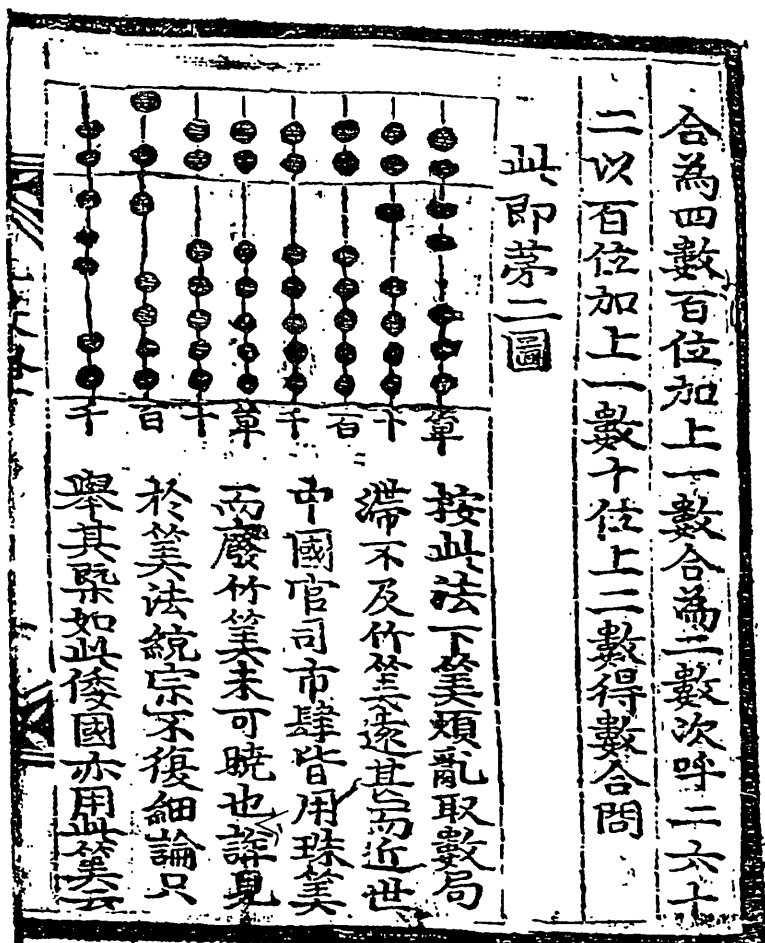 合為四數百位加上一數合為二數次呼二六十
二以百位加上一數十位上二數得數合問
此即第二圖
單
十
百
千
單
十
百
千
按此法下筭頗亂取數局
滯不及竹筭遠甚而近世
中國官司市肆皆用珠筭
而廢竹筭未可曉也詳見
於筭法統宗不復細論只
舉其槩如此倭國亦用此筭云